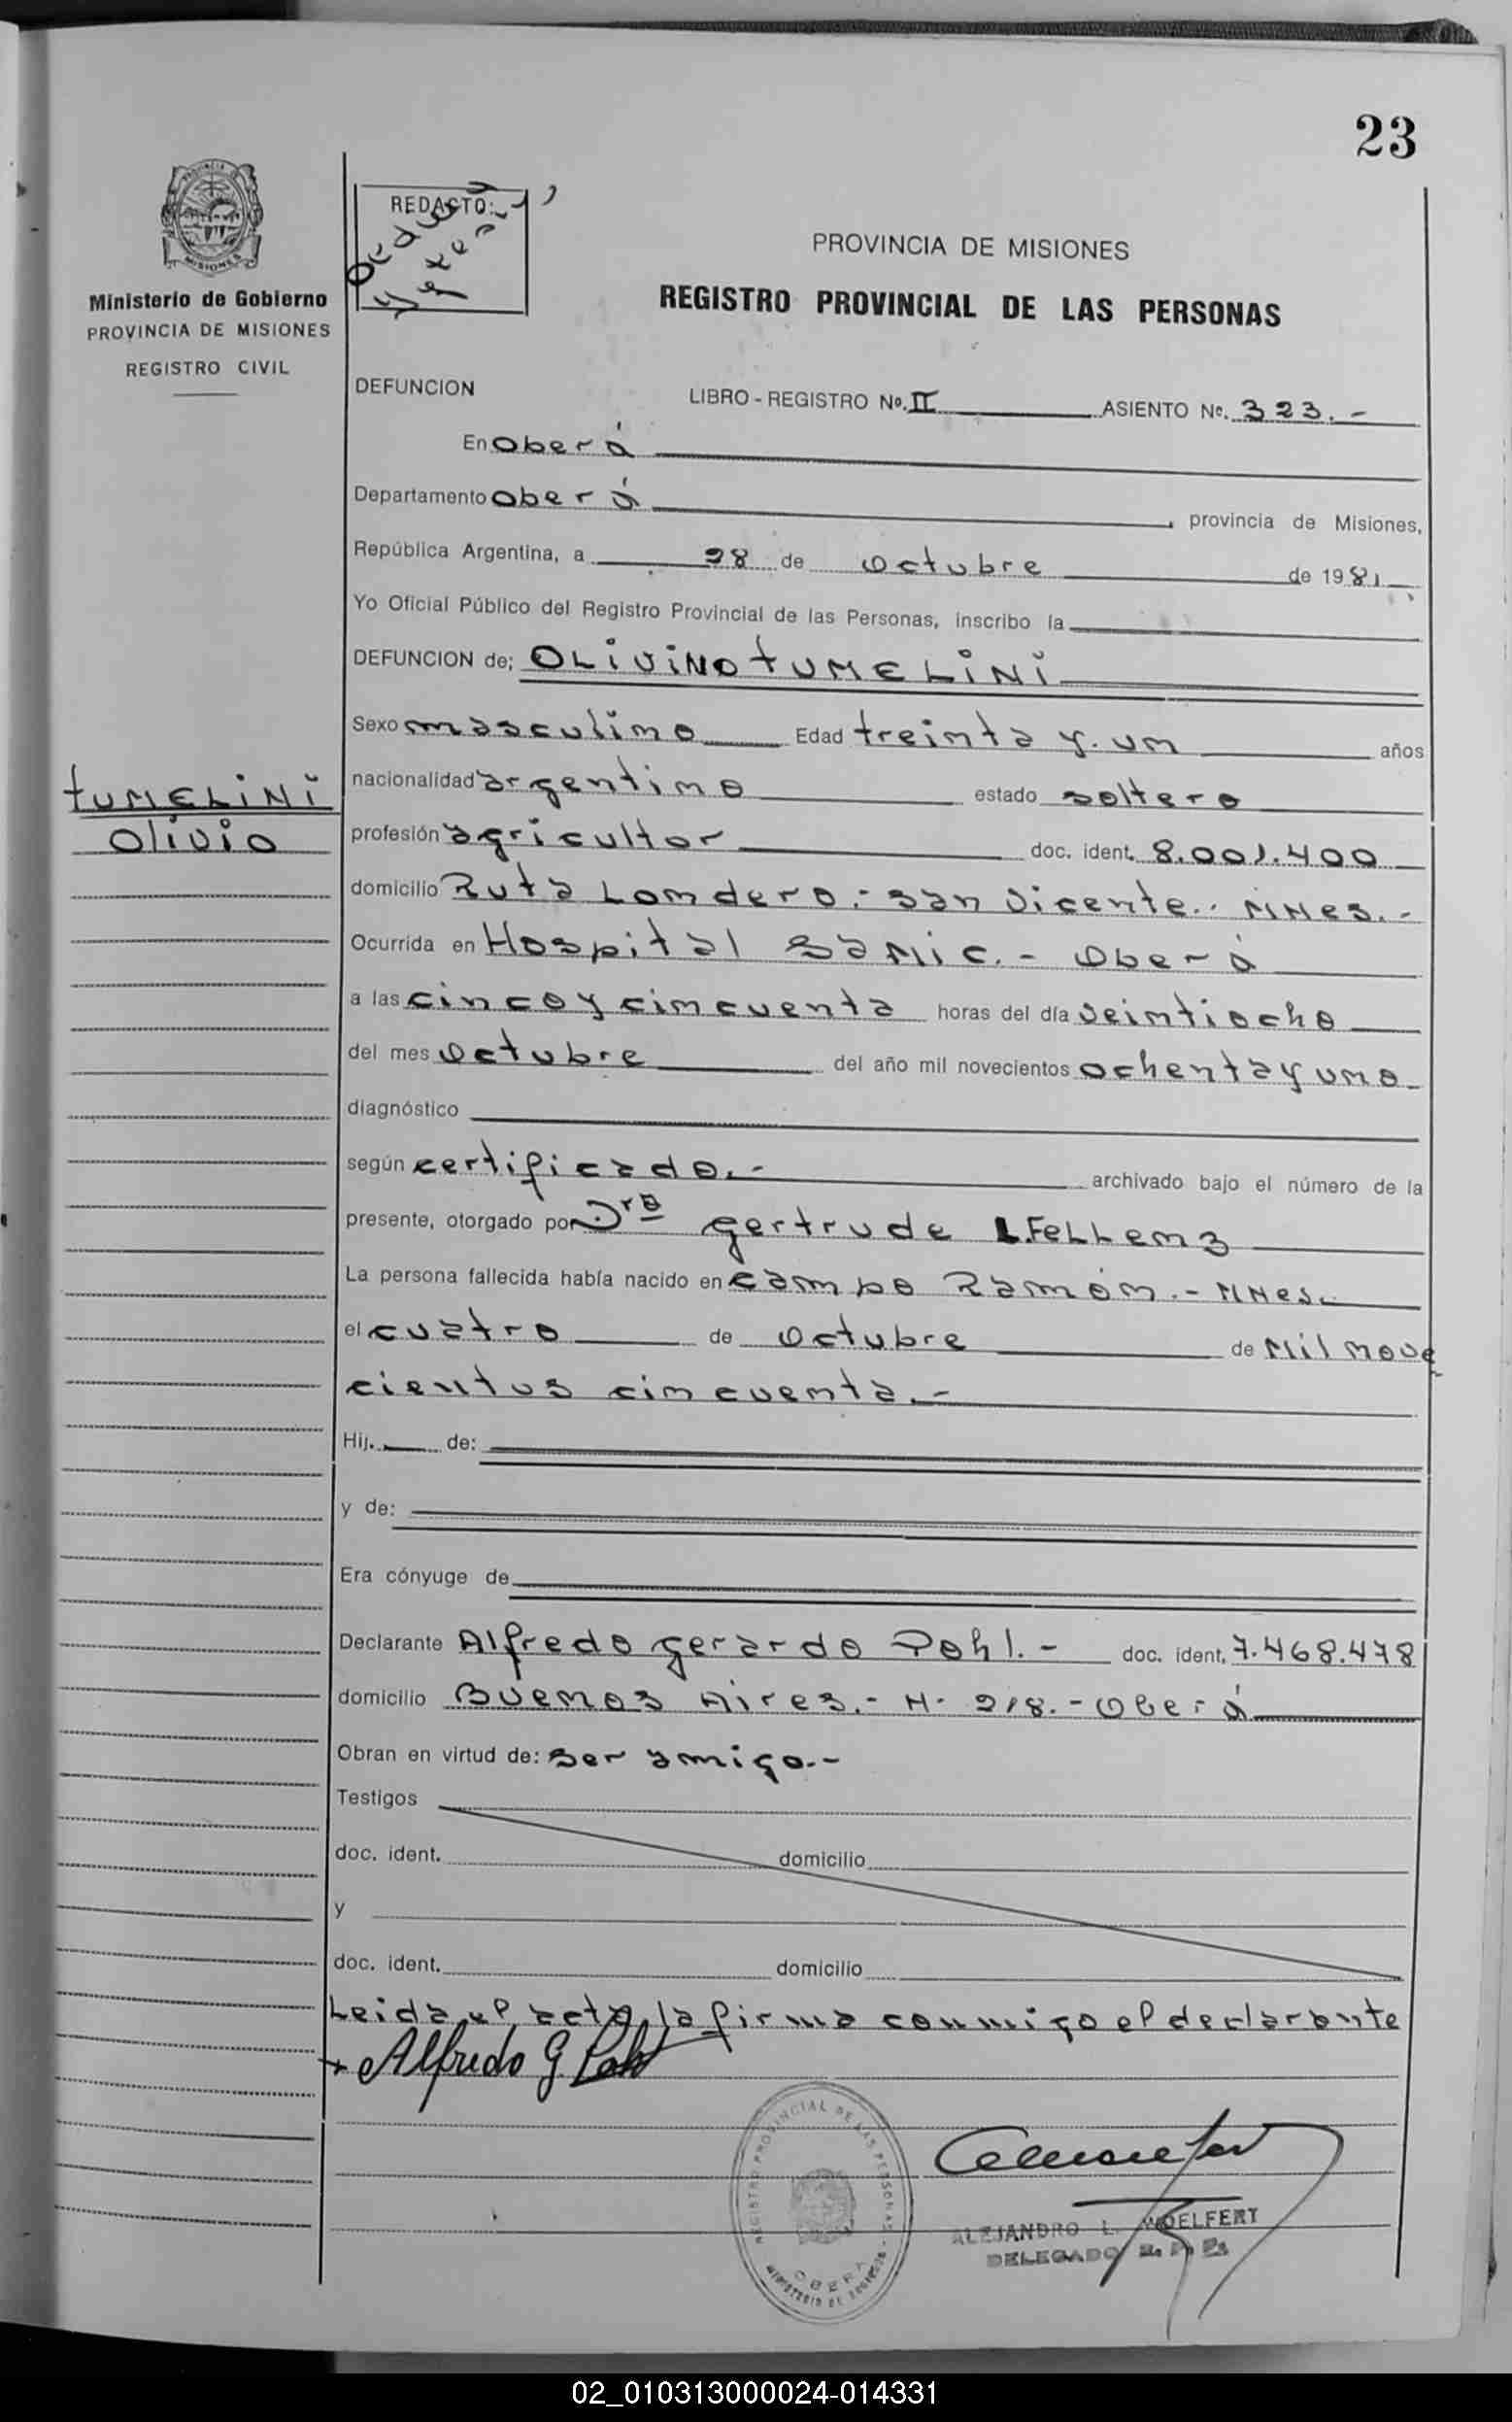 23
PROVINCIA DE
MISIONES
Ministerio de Gobierno
PROVINCIA DE MISIONES
REGISTRO CIVIL
REDACTO:
PROVINCIA DE MISIONES
REGISTRO PROVINCIAL DE LAS PERSONAS
DEFUNCION LIBRO - REGISTRO Nº. II ASIENTO Nº. 323.-
En Oberá
Departamento Oberá, provincia de Misiones,
República Argentina, a 28 de Octubre de 1981
Yo Oficial Público del Registro Provincial de las Personas, inscribo la
DEFUNCION de: OLIVINO TUMELINI
TUMELINI
Olivio
Sexo masculino Edad treinta y un años
nacionalidad argentino estado soltero
profesión agricultor doc. ident. 8.001.400
domicilio Ruta Londero.- San Vicente.. MNes.-
Ocurrida en Hospital SaMic.- Oberá
a las cinco y cincuenta horas del día veintiocho
del mes Octubre del año mil novecientos ochenta y uno-
diagnóstico
según certificado.- archivado bajo el número de la
presente, otorgado por Dra gertrude L. FeLLenz
La persona fallecida había nacido en campo Ramón.- MNes.
el cuatro de Octubre de Mil nove
cientos cincuenta.-
Hij. de:
y de:
Era cónyuge de
Declarante Alfredo gerardo Pohl.- doc. ident. 7.468.478
domicilio Buenos Aires.- N. 218.- Oberá
Obran en virtud de: ser amigo.-
Testigos
doc. ident. domicilio
y
doc. ident. domicilio
Leida el acta, la firma conmigo el declarante
Alfredo G. Pohl
REGISTRO PROVINCIAL DE LAS PERSONAS
OBERA
MINISTERIO DE GOBIERNO
ALEJANDRO L. WOELFERT
DELEGADO R. P. P.
02_010313000024-014331